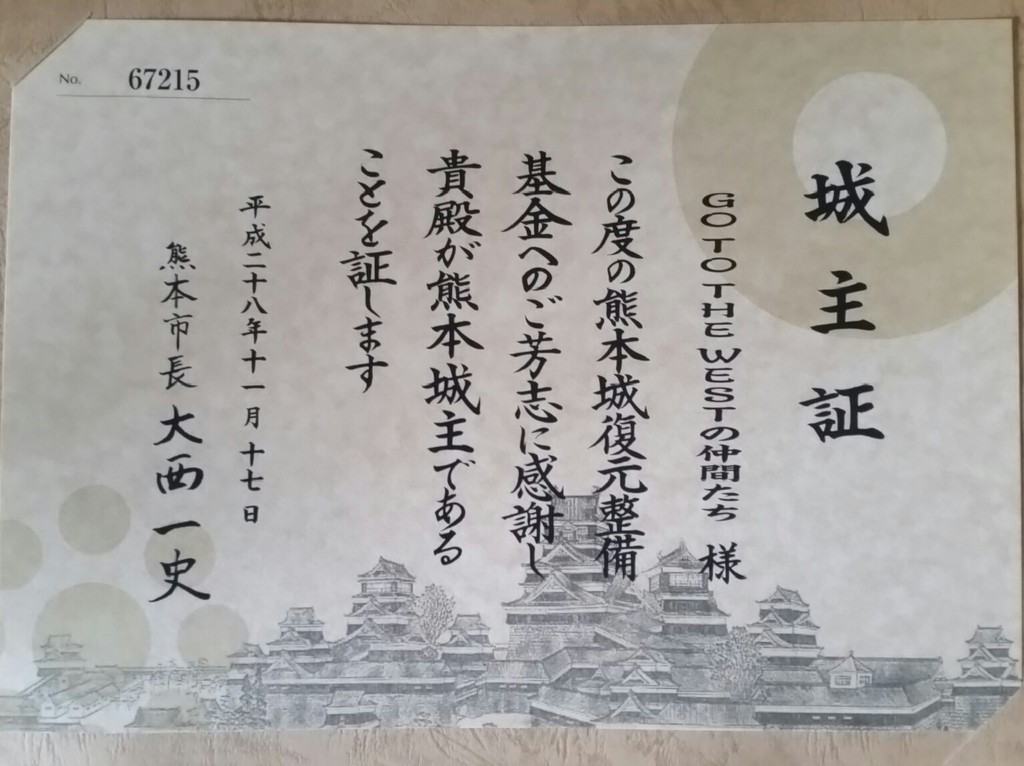 No. 67215
城主証
GO TO THE WESTの仲間たち 様
この度の熊本城復元整備
基金へのご芳志に感謝し
貴殿が熊本城主である
ことを証します
平成二十八年十一月十七日
熊本市長 大西一史